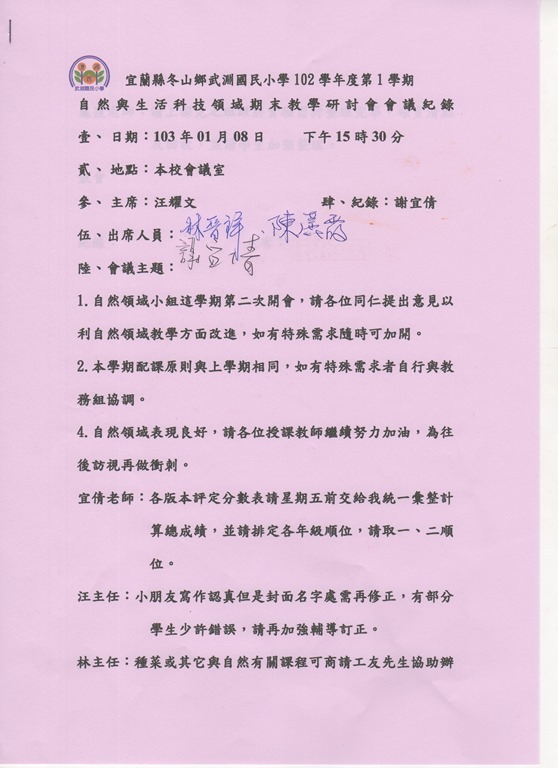 武淵國民小學
宜蘭縣冬山鄉武淵國民小學 102 學年度第 1 學期
自然與生活科技領域期末教學研討會會議紀錄
壹、日期：103 年 01 月 08 日 下午 15 時 30 分
貳、地點：本校會議室
參、主席：汪耀文 肆、紀錄：謝宜倩
伍、出席人員：林晉祥、陳
謝宜倩
陸、會議主題：
1.自然領域小組這學期第二次開會，請各位同仁提出意見以
利自然領域教學方面改進，如有特殊需求隨時可加開。
2.本學期配課原則與上學期相同，如有特殊需求者自行與教
務組協調。
4.自然領域表現良好，請各位授課教師繼續努力加油，為往
後訪視再做衝刺。
宜倩老師：各版本評定分數表請星期五前交給我統一彙整計
算總成績，並請排定各年級順位，請取一、二順
位。
汪主任：小朋友寫作認真但是封面名字處需再修正，有部分
學生少許錯誤，請再加強輔導訂正。
林主任：種菜或其它與自然有關課程可商請工友先生協助辦